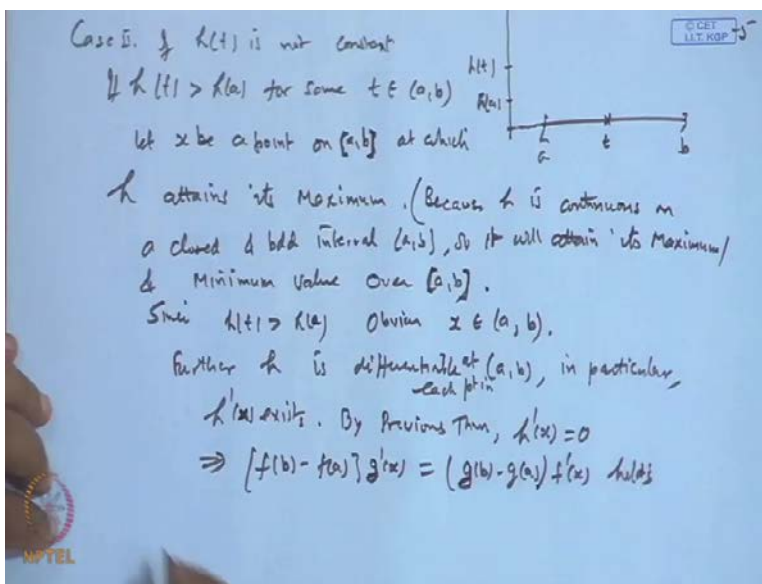 Case II. If h(t) is not constant
If h(t) > h(a) for some t ∈ (a,b)
let x be a point on [a,b] at which
h attains its Maximum. (Because h is continuous on
a closed & bdd interval [a,b], so it will attain its Maximum/
& Minimum Value over [a,b].
Since h(t) > h(a) Obvious x ∈ (a,b).
Further h is differentiable at (a,b), in particular,
each pt in
h'(x) exists. By Previous Thm, h'(x) = 0
⇒ [f(b) - f(a)] g'(x) = (g(b) - g(a)) f'(x) holds
h(t)
h(a)
a
t
b
© CET
I.I.T. KGP
NPTEL